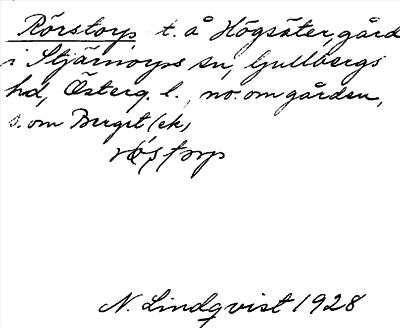 Rörstorp t. å Högsäter, gård
i Stjärnorps sn, Gullbergs
hd, Österg. l., no. om gården,
s. om Bergst (ek)
röstorp
N. Lindqvist 1928